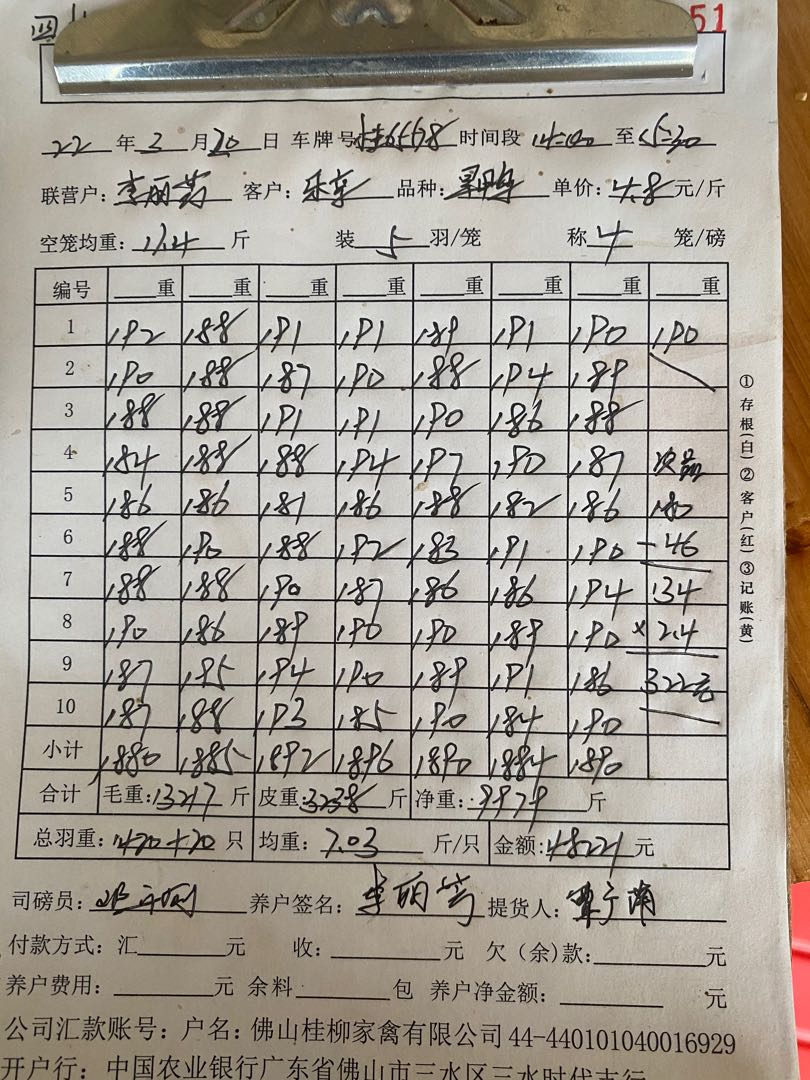 四
51
22 年 3 月 20 日 车牌号 桂6578 时间段 14:00 至 15:30
联营户: 李丽芳 客户: 乐享 品种: 单价: 4.8 元/斤
空笼均重: 11.4 斤 装 5 羽/笼 称 4 笼/磅
编号 重 重 重 重 重 重 重 重
1 192 188 191 191 189 191 190 190
2 190 188 187 190 188 194 189
3 188 188 191 191 190 186 188
4 184 188 188 194 197 190 187 次品
5 186 186 181 186 188 182 186 180
6 188 190 188 192 183 191 190 -46
7 188 188 190 187 186 186 194 134
8 190 186 189 190 190 189 190 ×2.4
9 187 195 194 190 189 191 186 322元
10 187 188 193 185 190 184 190
小计 1880 1885 1892 1896 1890 1884 1890
合计 毛重: 13217 斤 皮重: 3238 斤 净重: 9979 斤
总羽重: 1420+20 只 均重: 7.03 斤/只 金额: 48221 元
司磅员: 养户签名: 李丽芳 提货人:
付款方式: 汇 元 收: 元 欠(余)款: 元
养户费用: 元 余料 包 养户净金额: 元
公司汇款账号: 户名: 佛山桂柳家禽有限公司 44-440101040016929
开户行: 中国农业银行广东省佛山市三水区三水时代支行
①存根(白)②客户(红)③记账(黄)